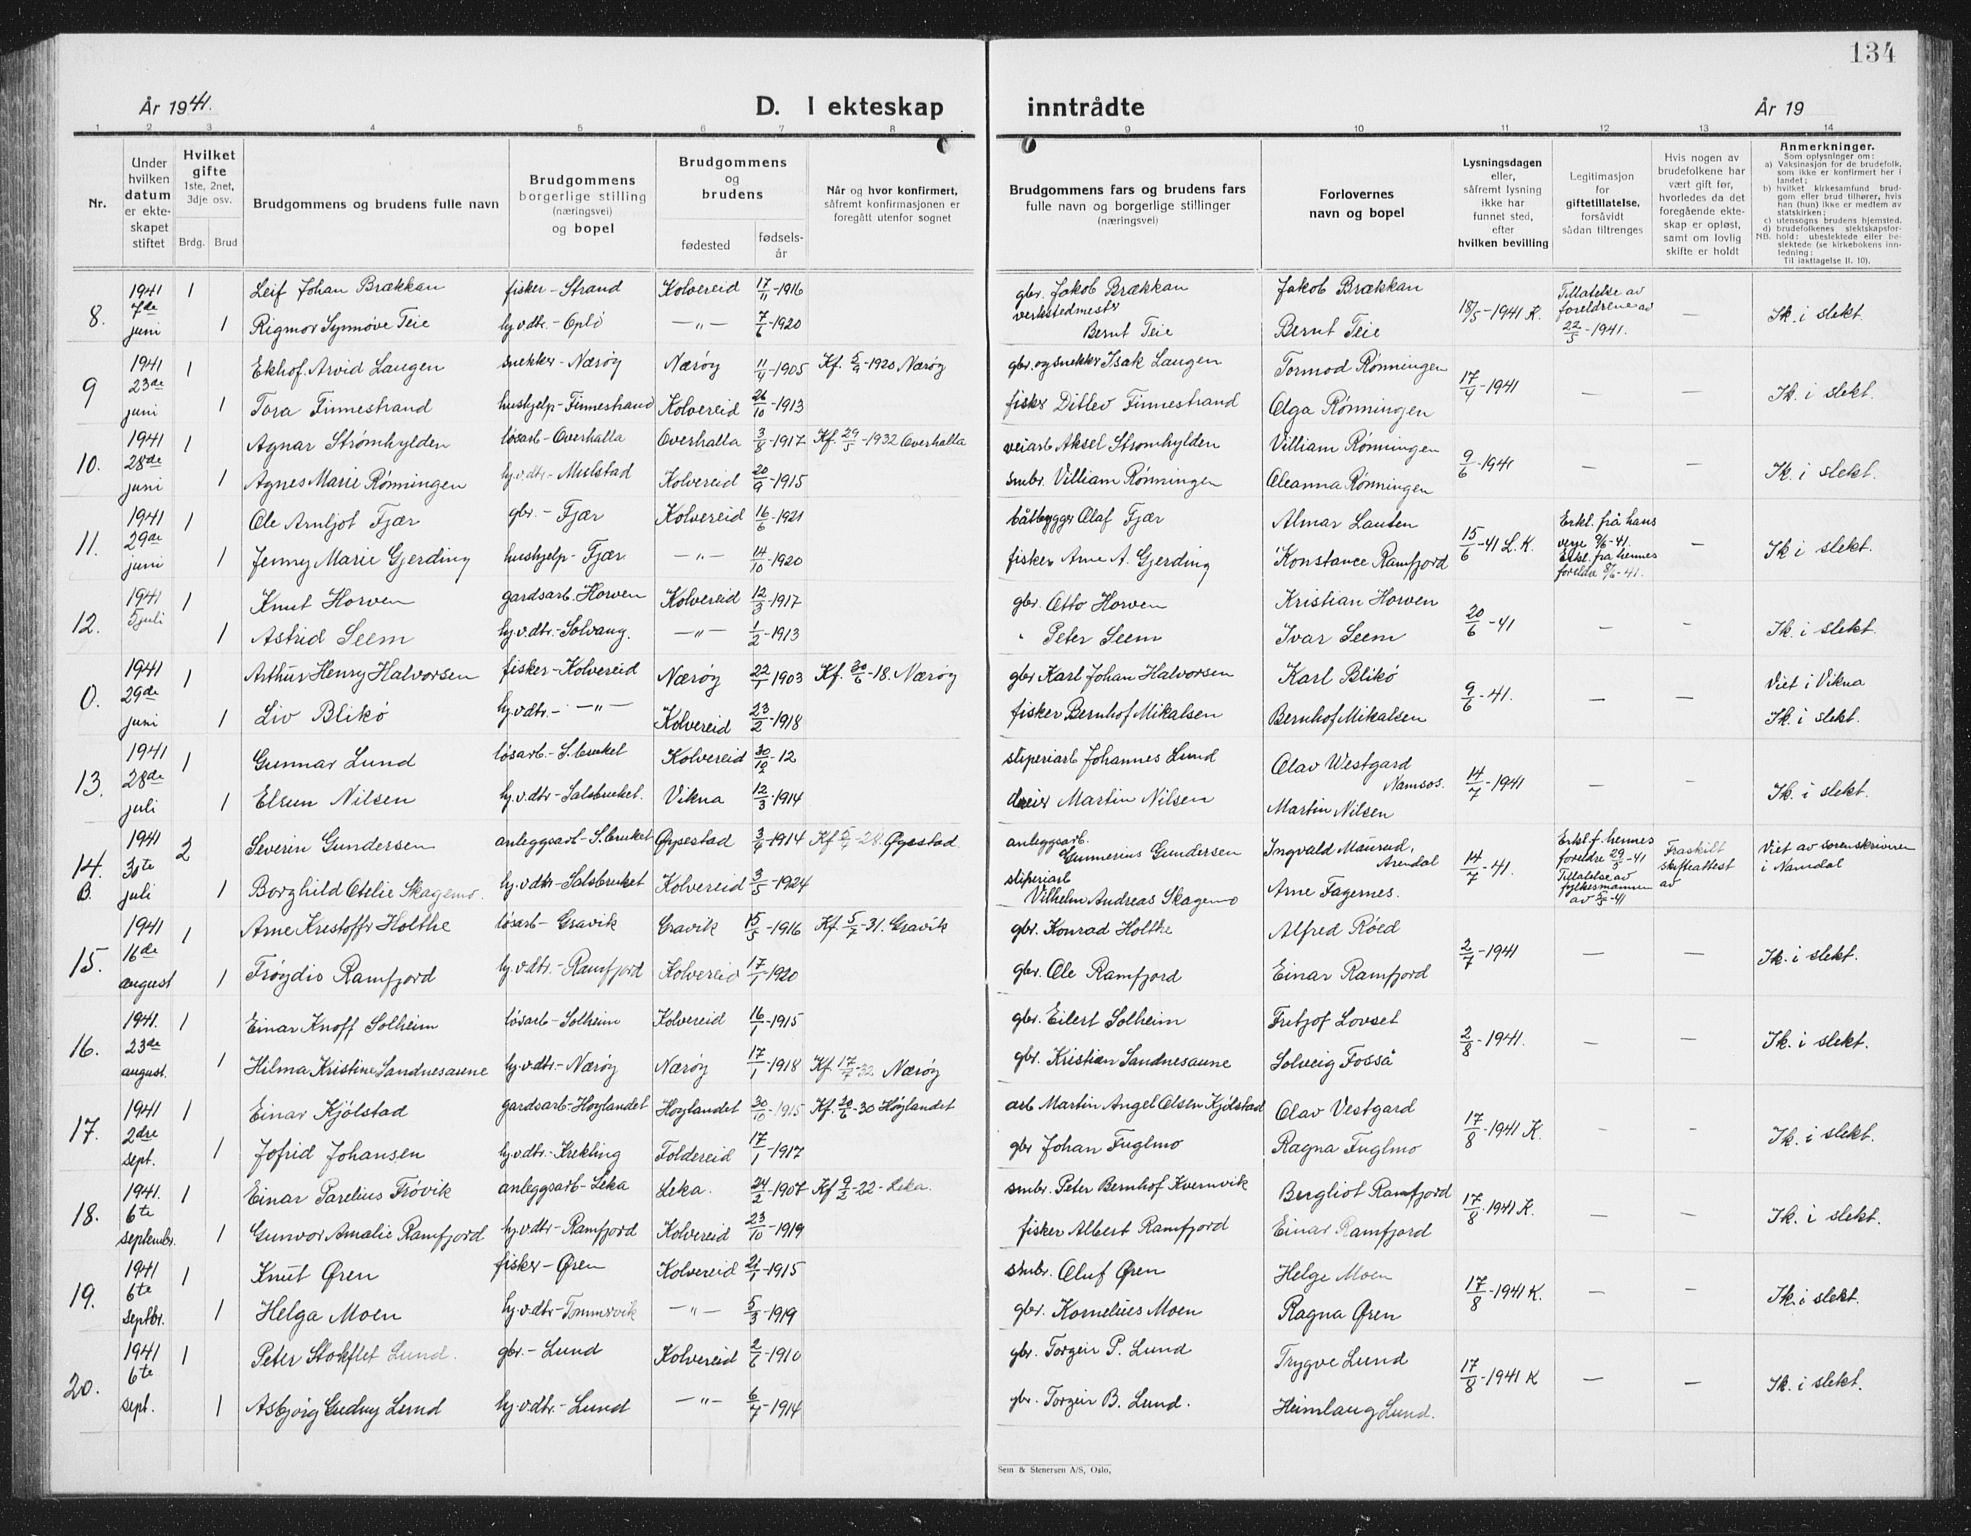 134
År 1941.
D. I ekteskap inntrådte
År 19
1 2 3 4 5 6 7 8 9 10 11 12 13 14
Nr.
Under hvilken datum er ekteskapet stiftet
Hvilket gifte
1ste, 2net, 3dje osv.
Brdg. Brud
Brudgommens og brudens fulle navn
Brudgommens borgerlige stilling (næringsvei) og bopel
Brudgommens og brudens
fødested
fødselsår
Når og hvor konfirmert, såfremt konfirmasjonen er foregått utenfor sognet
Brudgommens fars og brudens fars fulle navn og borgerlige stillinger (næringsvei)
Forlovernes navn og bopel
Lysningsdagen eller, såfremt lysning ikke har funnet sted, efter hvilken bevilling
Legitimasjon for giftetillatelse, forsåvidt sådan tiltrenges
Hvis nogen av brudefolkene har vært gift før, hvorledes da det foregående ekteskap er opløst, samt om lovlig skifte er holdt
Anmerkninger.
Som oplysninger om:
a) Vaksinasjon for de brudefolk, som ikke er konfirmert her i landet;
b) hvilket kirkesamfund brudgom eller brud tilhører, hvis han (hun) ikke er medlem av statskirken;
c) utensogns brudens hjemsted.
d) brudefolkenes slektskapsforhold: ubeslektede eller beslektede (se kirkebokens innledning:
NB. Til iakttagelse II. 10).
8. 1941 7de juni 1 Leif Johan Brækkan fisker - Strand Kolvereid 17/11-1916 gbr. Jakob Brækkan Jakob Brækkan 18/5-1941 K. Tillatelse av foreldrene av 22/5-1941. — Ik. i slekt.
1 Rigmor Synnøve Teie hj.v.dtr. - Oplö —"— 7/6-1920 verkstedmester Bernt Teie Bernt Teie
9 1941 23de juni 1 Ekhof Arvid Laugen snekker - Nærøy Nærøy 11/4-1905 Kf. 5/9-1920 Nærøy gbr. og snekker Isak Laugen Tormod Rönningen 17/4-1941 — — Ik. i slekt.
1 Tora Finnestrand hushjelp - Finnestrand Kolvereid 26/10-1913 fisker Ditlev Finnestrand Olga Rönningen
10. 1941 28de juni 1 Agnar Strömhylden lösarb - Overhalla Overhalla 3/8-1917 Kf. 29/5-1932 Overhalla veiarb Aksel Strömhylden Villiam Rönningen 9/6-1941 — — Ik. i slekt.
1 Agnes Marie Rönningen hj.v.dtr. - Mulstad Kolvereid 20/9-1915 smbr. Villiam Rönningen Oleanna Rönningen
11. 1941 29de juni 1 Ole Arnljot Fjær gbr. - Fjær Kolvereid 16/6-1921 båtbygger Olaf Fjær Almar Lauten 15/6-41 L. K. Erkl. frå hans verje 9/6-41. Erkl. fra hennes foreldre 8/6-41. — Ik i slekt.
1 Jenny Marie Gjerding hushjelp - Fjær —"— 14/10-1920 fisker Arne A. Gjerding Konstance Ramfjord
12. 1941 5 juli 1 Knut Horven gardsarb. Horven Kolvereid 12/3-1917 gbr. Otto Horven Kristian Horven 20/6-41 — — Ik. i slekt.
1 Astrid Seem hj.v.dtr. - Solvang. —"— 1/2-1913 " Peter Seem Ivar Seem
0. 1941 29de juni 1 Arthur Henry Halvorsen fisker - Kolvereid Nærøy 22/1-1903 Kf. 30/6-18. Nærøy gbr Karl Johan Halvorsen Karl Blikö 9/6-41. — — Viet i Vikna
1 Liv Blikö hj.v.dtr. - —"— Kolvereid 23/2-1918 fisker Bernhof Mikalsen Bernhof Mikalsen Ik. i slekt.
13. 1941 28de juli 1 Gunnar Lund lösarb. - S.bruket Kolvereid 30/12-12 sliperiarb Johannes Lund Olav Westgard Namsos. 14/7-1941 — — Ik. i slekt.
1 Elsun Nilsen hj.v.dtr - Salsbruket. Vikna 12/3-1914 dreier Martin Nilsen Martin Nilsen
14. B. 1941 30te juli 2 Severin Gundersen anleggsarb - S.bruket Øyestad 3/6-1914 Kf -28. Øyestad anleggsarb. Gunnerius Gundersen Ingvald Maurud, Arendal 14/7-41. Erkl f. hennes foreldre 29/5-41 Tillatelse av fylkesmannen av -41 Fraskilt skifteattest av Viet av sorenskriveren i Namdal
1 Borghild Otelie Skagemo. hj.v.dtr - Salsbruket Kolvereid 3/5-1924 sliperiarb Vilhelm Andreas Skagemo Arne Fagernes.
15. 1941 16de august 1 Arne Kristoffr Holthe lösarb - Gravik Gravik 15/5-1916 Kf. 5/7-31. Gravik gbr. Konrad Holthe Alfred Röed 2/7-1941 — — Ik. i slekt.
1 Fröydis Ramfjord hj.v.dtr. - Ramfjord Kolvereid 17/1-1920 gbr. Ole Ramfjord Einar Ramfjord
16. 1941. 23de august. 1 Einar Knoff Solheim lösarb - Solheim Kolvereid 16/1-1915 gbr. Eilert Solheim Fritjof Lovset 2/8-1941. — — Ik. i slekt.
1 Hilma Kristine Sandnesaune hj.v.dtr. - Nærøy Nærøy 17/1-1918 Kf. 17/7-32 Nærøy gbr. Kristian Sandnesaune Solveig Fosså
17. 1941 2dre sept. 1 Einar Kjölstad gardsarb - Høylandet Høylandet 30/10-1915 Kf. 20/6-30 Høylandet arb Martin Angel Olsen Kjölstad Olav Vestgard 17/8-1941 K. — — Ik. i slekt.
1 Jofrid Johansen hj.v.dtr. - Krekling Foldereid 17/1-1917 gbr Johan Fuglmo Ragna Fuglmo
18. 1941. 6te septembr. 1 Einar Parelius Frövik anleggsarb - Leka Leka. 24/2-1907 Kf 9/2-22 - Leka. smbr. Peter Bernhof Kvernvik Bergliot Ramfjord 17/8-1941 K. — — Ik. i slekt.
1 Gunvor Amalie Ramfjord hj.v.dtr - Ramfjord Kolvereid 23/10-1919 fisker Albert Ramfjord Einar Ramfjord
19. 1941 6te septbr. 1 Knut Øren fisker - Øren Kolvereid 21/1-1915 smbr. Oluf Øren Helge Moen 17/8-1941 K. — — Ik. i slekt.
1 Helga Moen hj.v.dtr - Tommervik —"— 5/3-1919 gbr. Kornelius Moen Ragna Øren
20. 1941 6te sept. 1 Peter Stokflet Lund. gbr. - Lund Kolvereid 2/6-1910 gbr. Torgeir P. Lund Trygve Lund 17/8-1941 K — — Ik. i slekt.
1 Asbjörg Gudny Lund hj.v.dtr. - Lund —"— 6/7-1914 gbr. Torgeir B. Lund. Heimlaug Lund.
Sem & Stenersen A/S, Oslo.